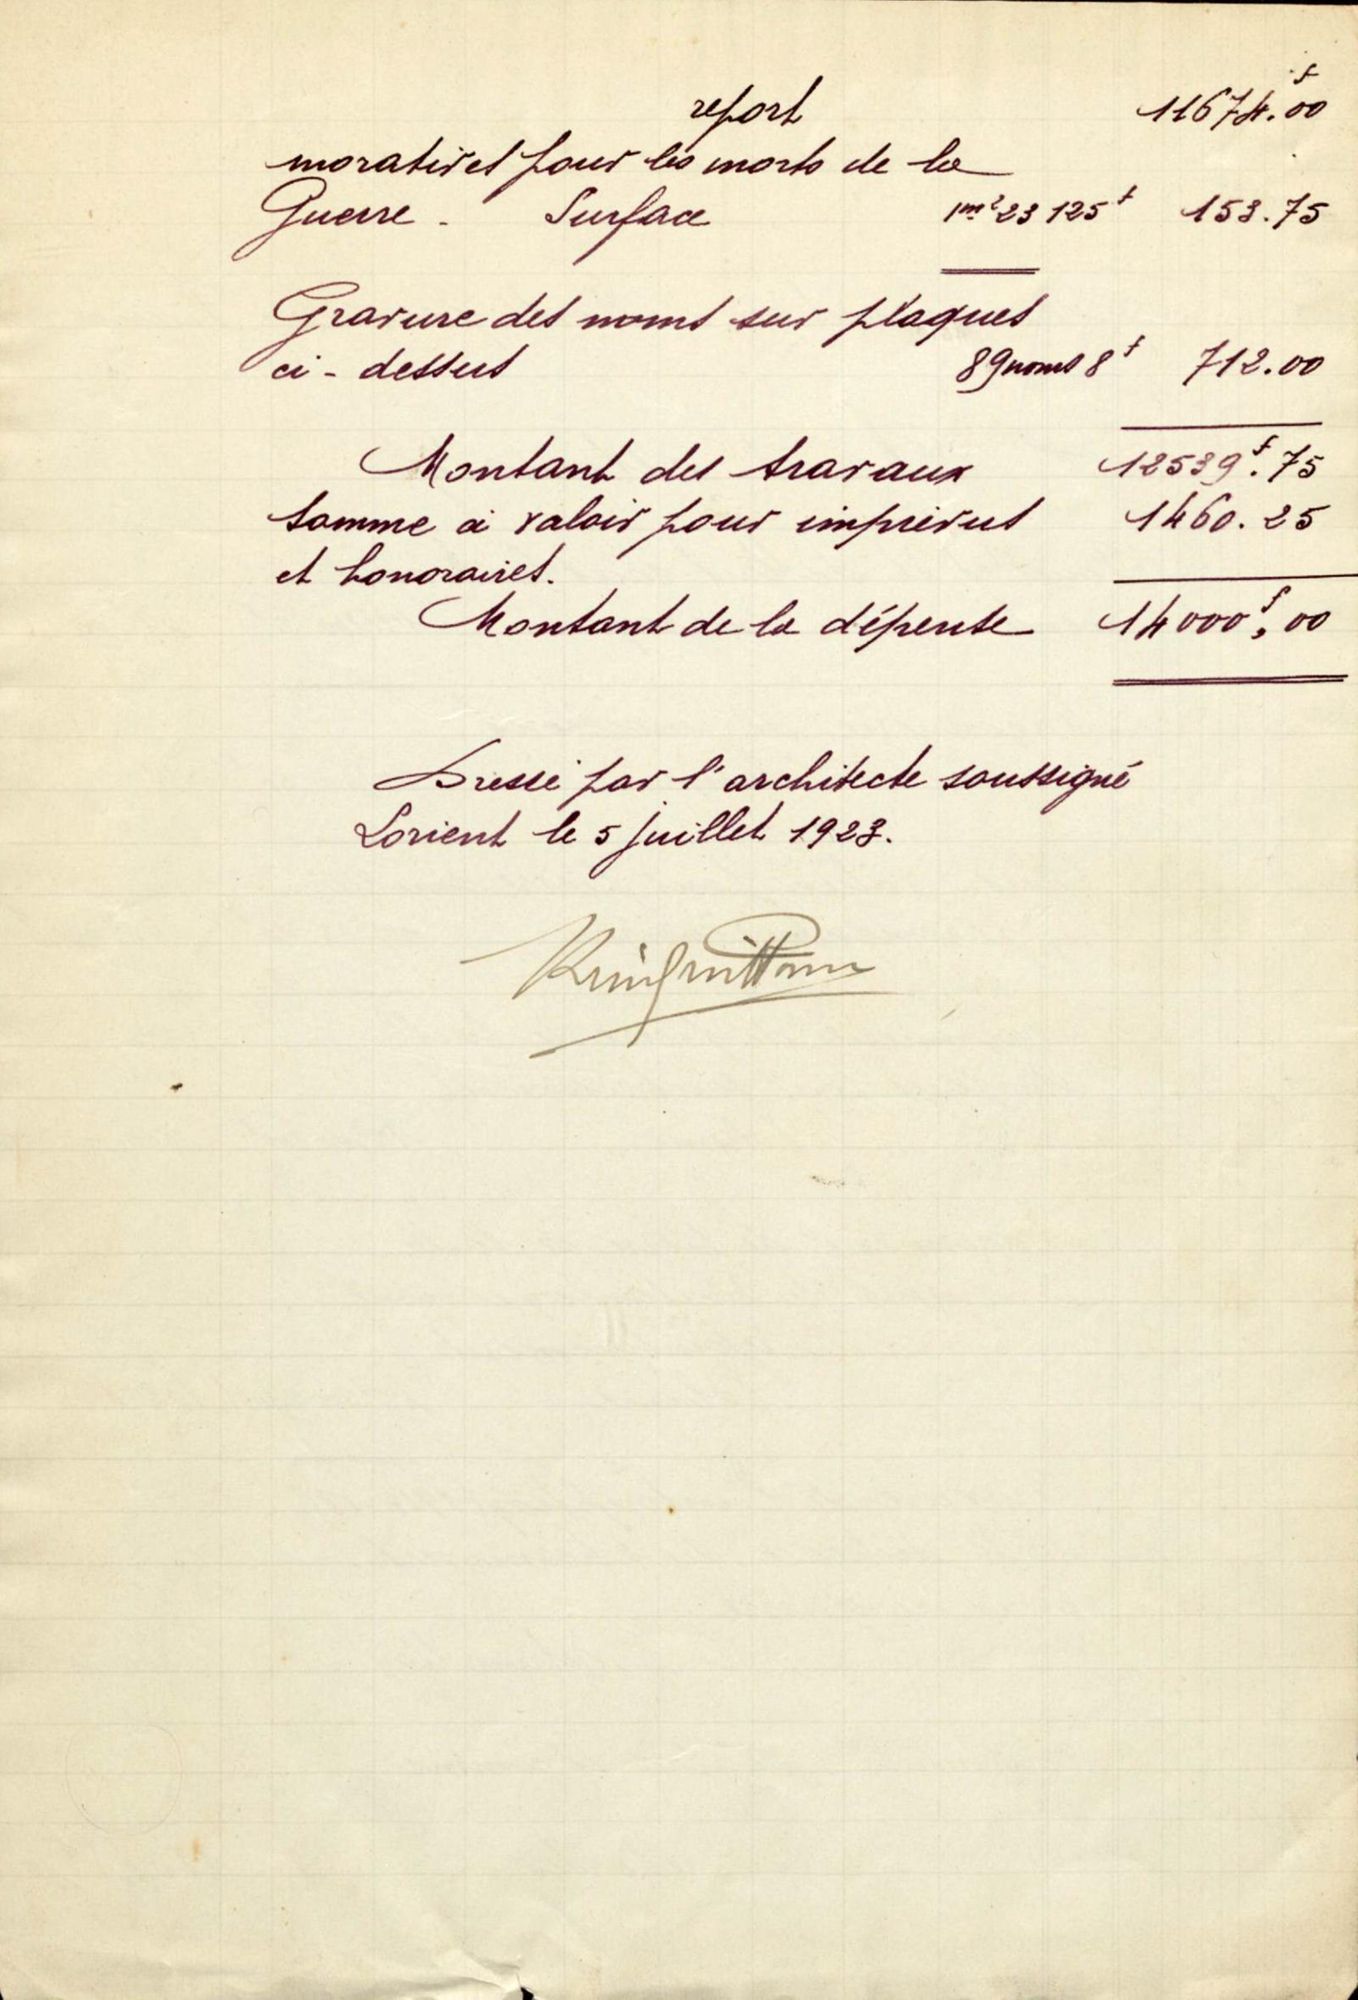 report 11674.f00
moratives pour les morts de la
Guerre - Surface 1m²23 125f 153.75
Gravure des noms sur plaques
ci-dessus 89 noms 8f 712.00
Montant des travaux 12539f.75
Somme à valoir pour imprévus 1460.25
et honoraires.
Montant de la dépense 14000f,00
Dressé par l'architecte soussigné
Lorient le 5 juillet 1923.